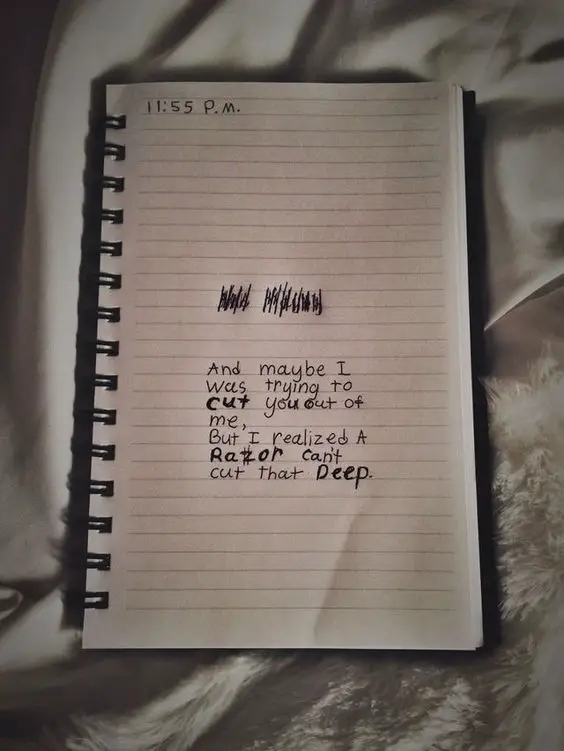 11:55 P.M.
And maybe I
was trying to
cut you out of
me,
But I realized A
Razor can't
cut that Deep.